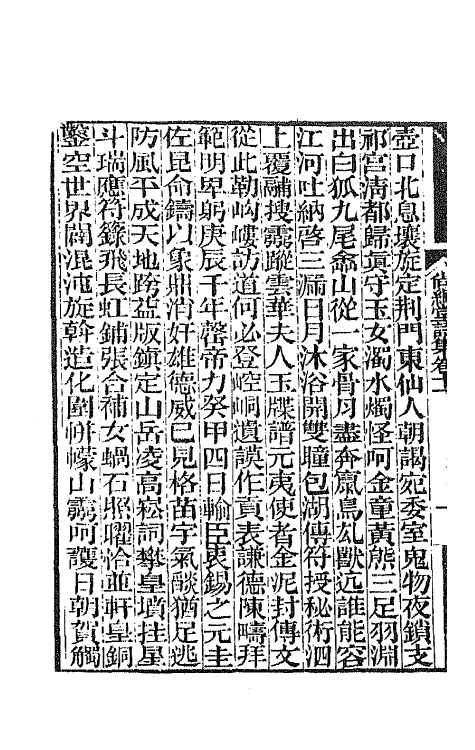 壺口北息壤旋定荆門東仙人朝謁宛委室鬼物夜鎖支
祁宮清都歸眞守玉女濁水燭怪呵金童黃熊三足羽淵
出白狐九尾龕山從一家骨月盡奔嬴鳥九獸近誰能容
江河吐納啓三漏日月沐浴開雙瞳包湖傳符授秘術泗
上覆鬴搜靈蹤雲華夫人玉牒譜元夷使者金泥封傳文
從此勒岣嶁訪道何必登崆峒遺謨作貢表謙德陳疇拜
範明卑躬庚辰千年罄帝力癸甲四日輸臣衷錫之元圭
佐昆命鑄以象鼎消奸雄德威已見格苗字氣燄猶足逃
防風平成天地跨益版鎮定山岳凌高崧詞攀皇墳挂星
斗瑞應符籙飛長虹鋪張合補女媧石照曜恰並軒皇銅
鑿空世界闢混沌旋斡造化圍帡幪山靈呵護日朝賀觸
尚絅堂詩集卷十